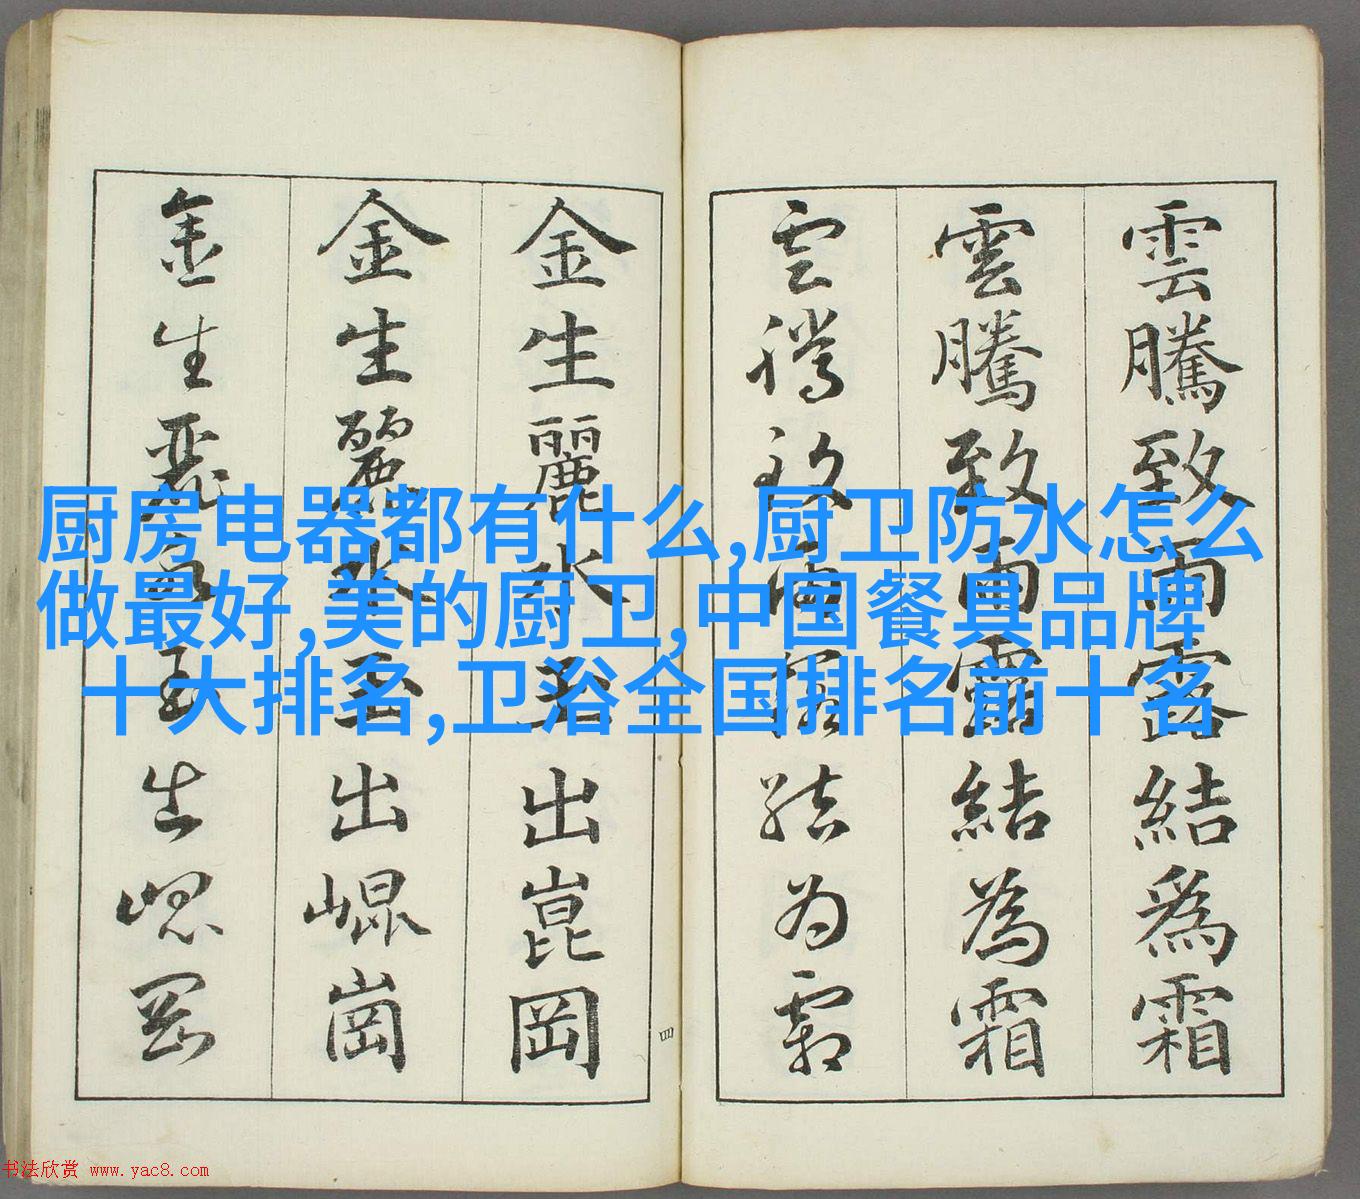 雲騰致雨露結爲霜
雲騰致雨露結為霜
雲騰致雨露結为霜
金生麗水玉出崑岡
金生麗水玉出崐崗
金生麗水玉出崐岡
四
厨房电器都有什么,厨卫防水怎么
做最好,美的厨卫,中国餐具品牌
十大排名,卫浴全国排名前十名
书法欣赏 www.yac8.com